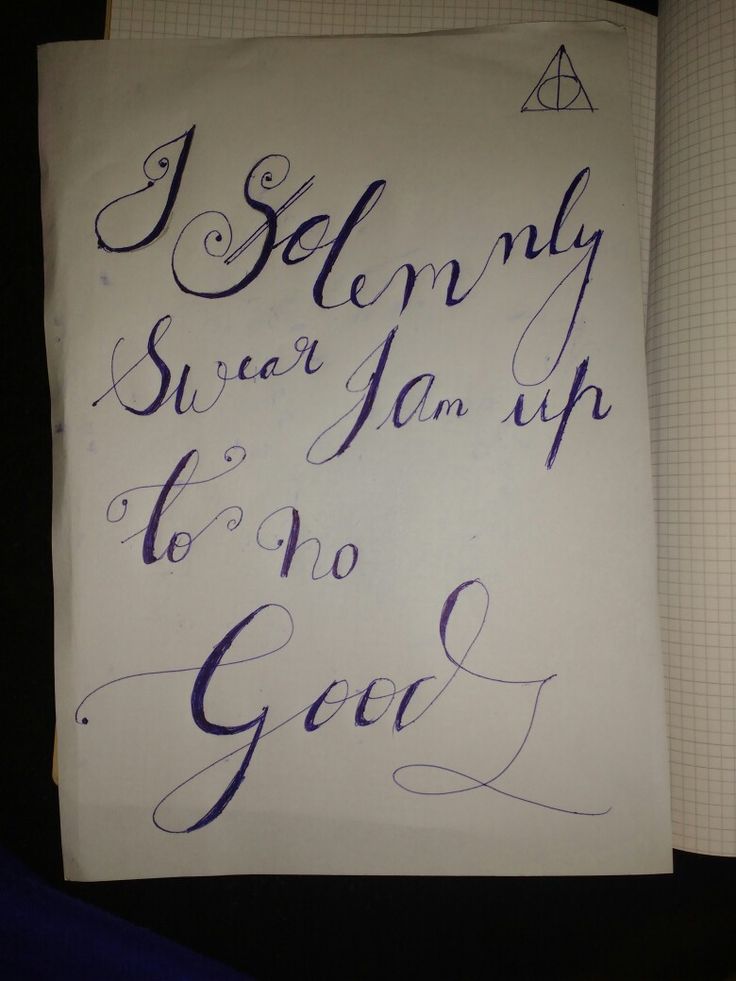 I Solemnly
Swear I am up
to no
Good